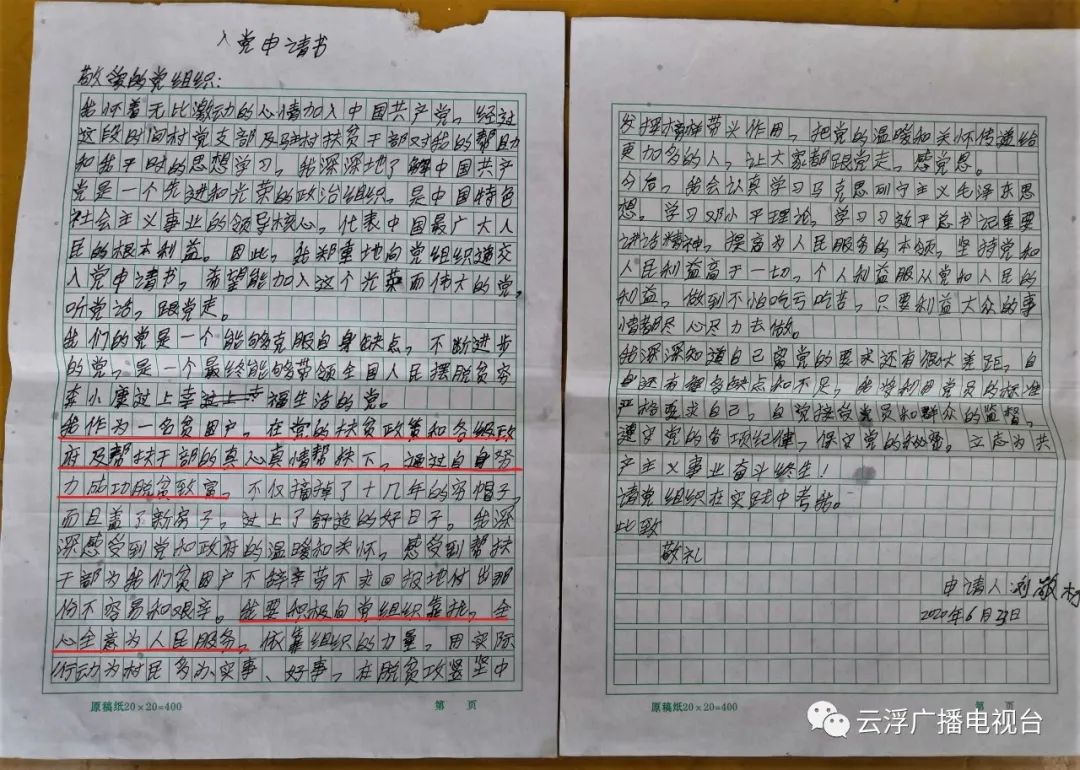 入党申请书
敬爱的党组织：
我怀着无比激动的心情加入中国共产党，经过
这段时间村党支部及驻村扶贫干部对我的帮助
和我平时的思想学习，我深深地了解中国共产
党是一个先进和光荣的政治组织，是中国特色
社会主义事业的领导核心，代表中国最广大人
民的根本利益。因此，我郑重地向党组织递交
入党申请书，希望能加入这个光荣而伟大的党，
听党话，跟党走。
我们的党是一个能够克服自身缺点，不断进步
的党，是一个最终能够带领全国人民摆脱贫穷
奔小康过上幸福生活的党。
我作为一名贫困户，在党的扶贫政策和各级政
府及帮扶干部的真心真情帮扶下，通过自身努
力成功脱贫致富，不仅摘掉了十几年的穷帽子，
而且盖了新房子，过上了舒适的好日子。我深
深感受到党和政府的温暖和关怀，感受到帮扶
干部为我们贫困户不辞辛劳不求回报地付出那
份不容易和艰辛。我要积极向党组织靠拢，全
心全意为人民服务，依靠组织的力量，用实际
行动为村民多办实事、好事，在脱贫攻坚坚中
原稿纸20×20=400 第 页
发挥模范带头作用，把党的温暖和关怀传递给
更加多的人，让大家都跟党走，感党恩。
今后，我会认真学习马克思列宁主义毛泽东思
想，学习邓小平理论，学习习近平总书记重要
讲话精神，提高为人民服务的本领，坚持党和
人民利益高于一切，个人利益服从党和人民的
利益，做到不怕吃亏吃苦，只要利益大众的事
情都尽心尽力去做。
我深深知道自己离党的要求还有很大差距，自
身还有很多缺点和不足，我要利用党员的标准
严格要求自己，自觉接受党员和群众的监督，
遵守党的各项纪律，保守党的秘密。立志为共
产主义事业奋斗终生！
请党组织在实践中考验。
此致
敬礼
申请人：刘敬村
2020年6月23日
原稿纸20×20=400
云浮广播电视台